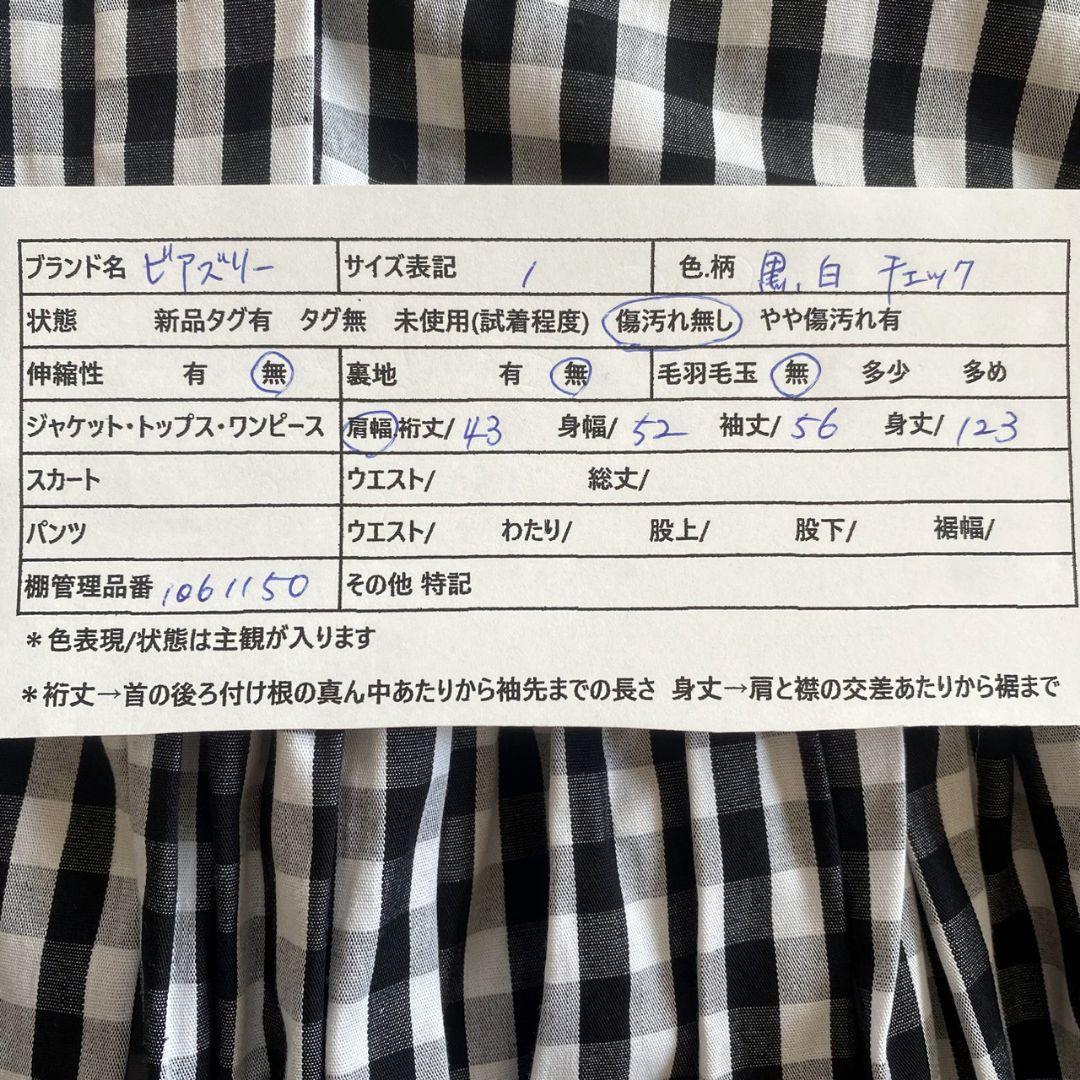 ブランド名 ビアズリー サイズ表記 1 色.柄 黒、白 チェック
状態 新品タグ有 タグ無 未使用(試着程度) 傷汚れ無し やや傷汚れ有
伸縮性 有 無 裏地 有 無 毛羽毛玉 無 多少 多め
ジャケット・トップス・ワンピース 肩幅.裄丈/ 43 身幅/ 52 袖丈/ 56 身丈/ 123
スカート ウエスト/ 総丈/
パンツ ウエスト/ わたり/ 股上/ 股下/ 裾幅/
棚管理品番 1061150 その他 特記
＊色表現/状態は主観が入ります
＊裄丈→首の後ろ付け根の真ん中あたりから袖先までの長さ 身丈→肩と襟の交差あたりから裾まで